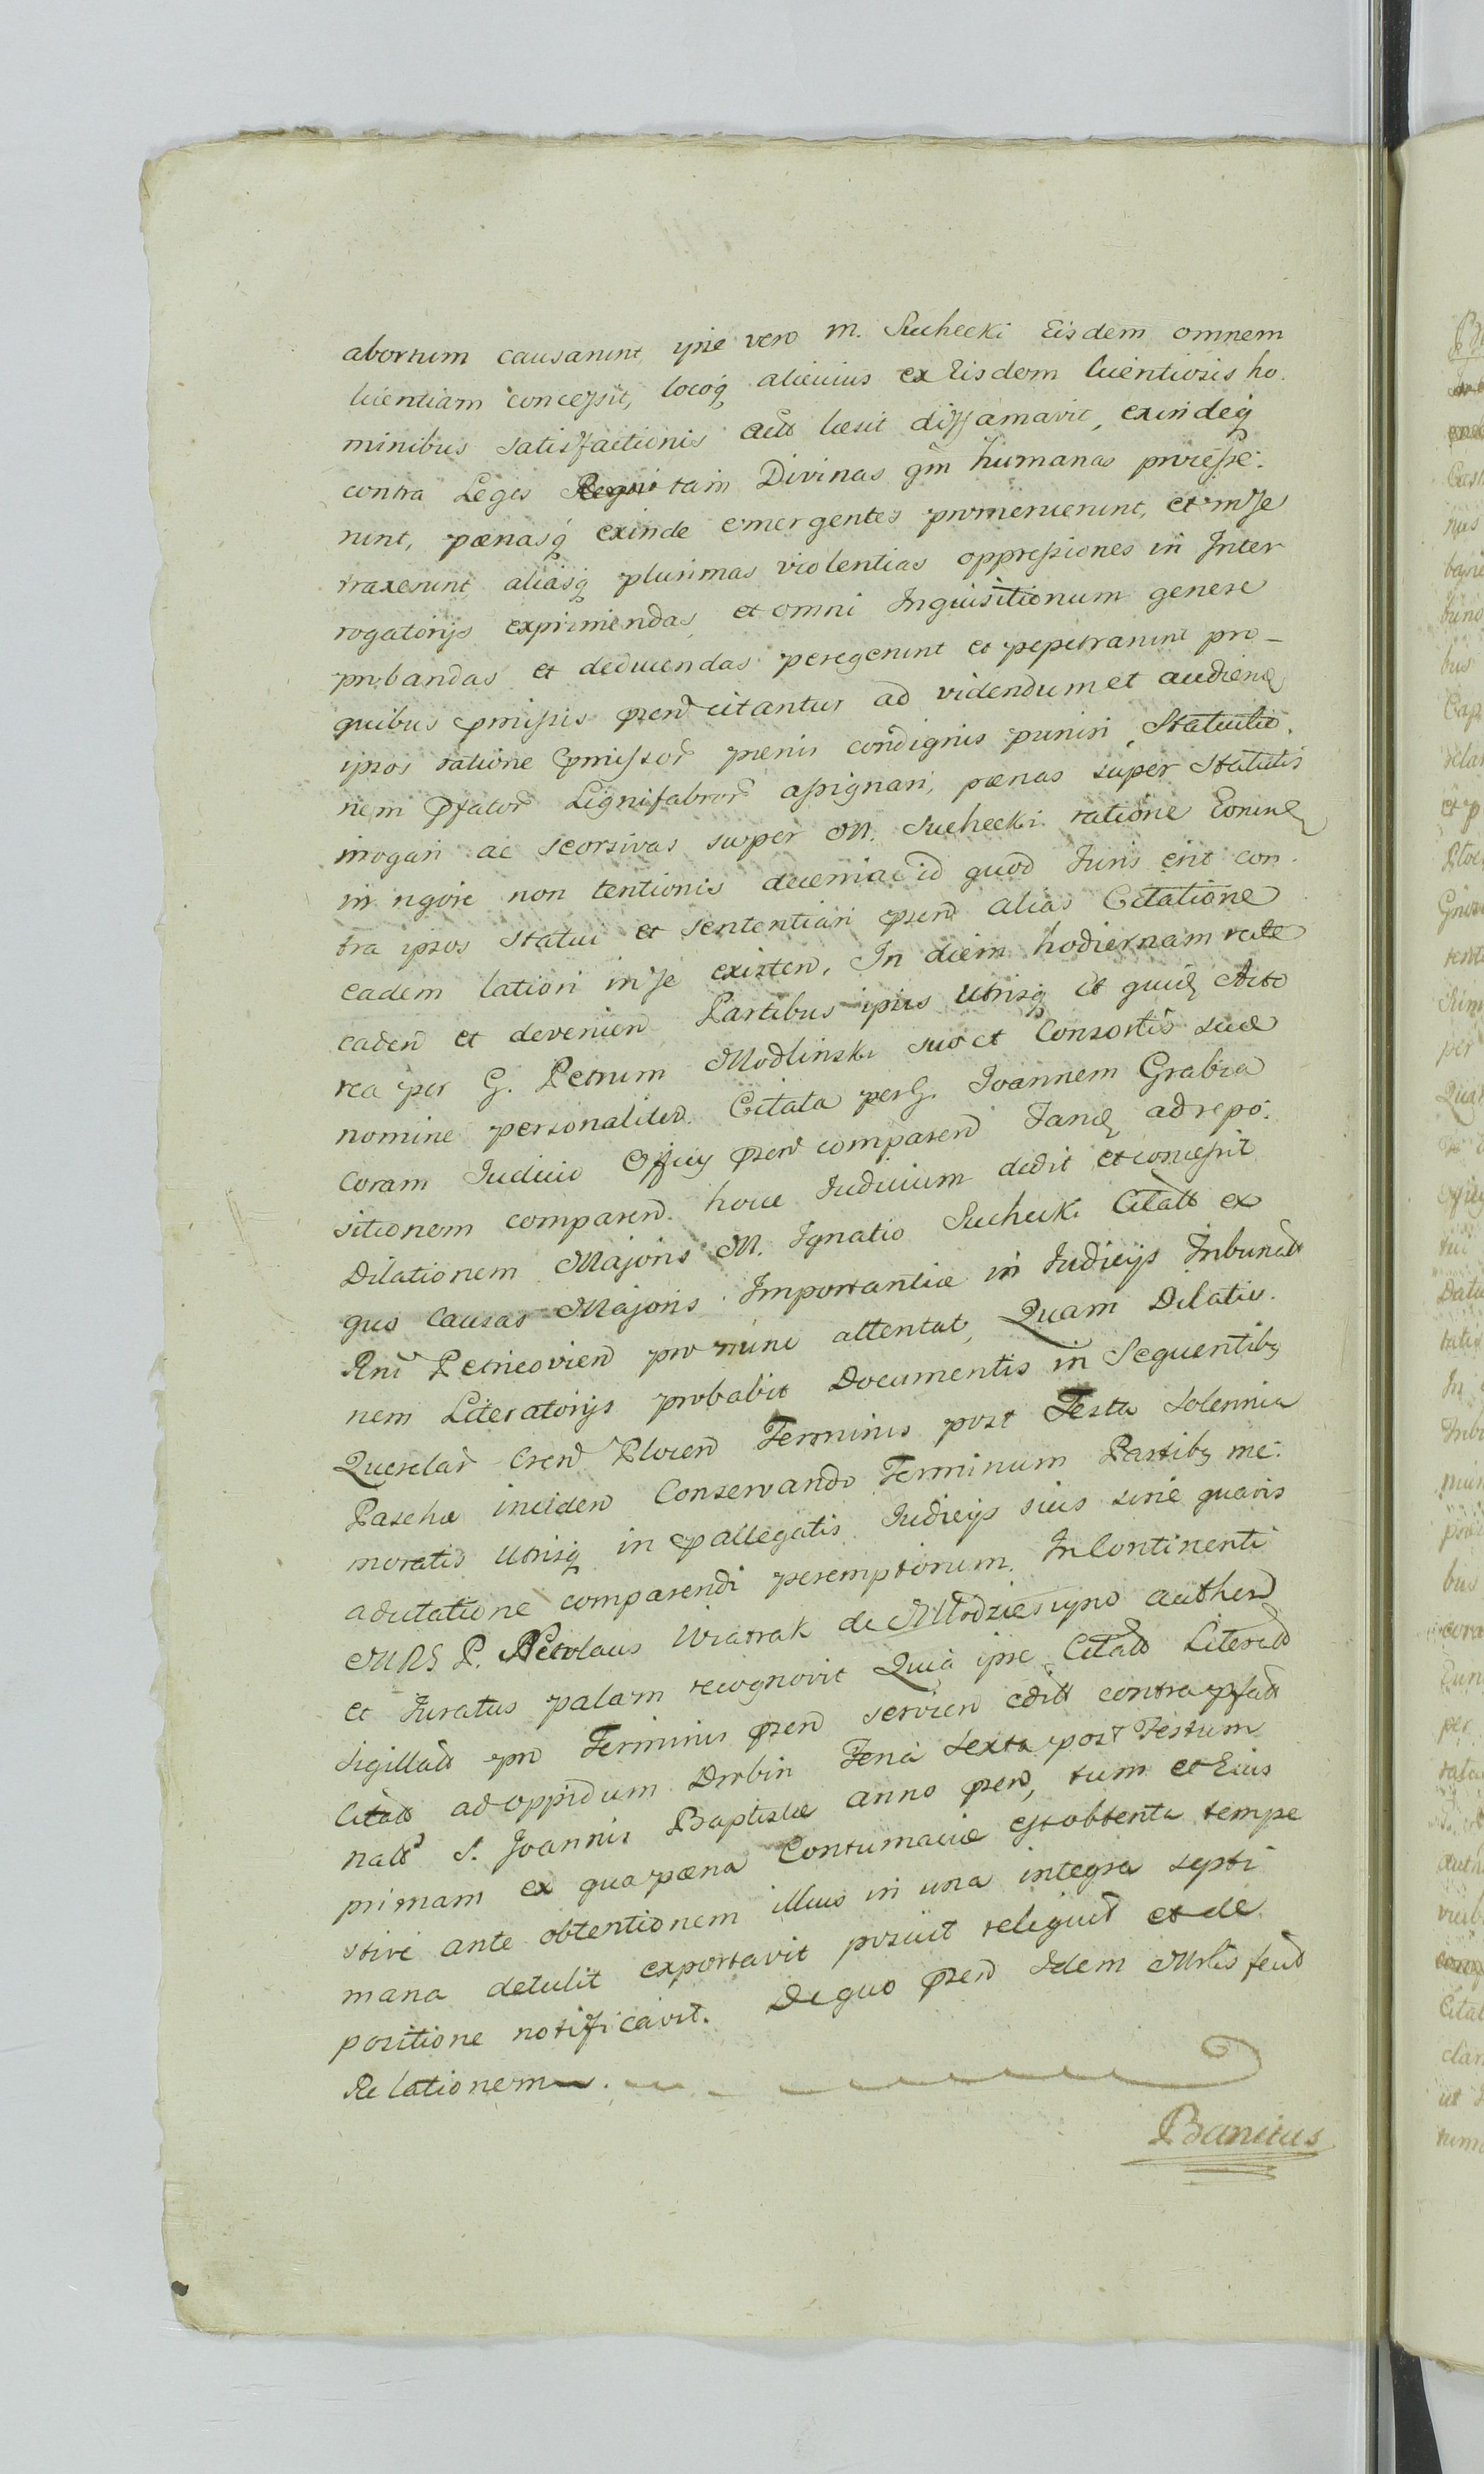 abortum causarunt, ipse vero m. Suchecki Eisdem omnem
licentiam concessit, locoq́ alicuius ex Eisdem licentiosis ho-
minibus satisfactionis actt læsit diffamavit, exindeq́
contra Leges tam Divinas qm̃ humanas processe-
runt, pœnasq́ exinde emergentes promeruerunt, et in se
traxerunt, aliasq́ plurimas violentias oppressiones in Inter
rogatorijs exprimendas, et omni Inquisitionum genere
probandas et deducendas peregerunt et pepetrarunt pro-
quibus pmissis præn̄ citantur ad videndum et audienḍ
ipsos ratione pmissor̄ pœnis condignis puniri, Statutio-
nem pfator̄ Lignifabror̄ assignari, pœnas super Statutis
irrogari ac seorsivas super M. Suchecki ratione Eorunḍ
in rigore non tentionis decerni ac id quod Juris erit con-
tra ipsos statui et sententiari præn̄ alias Citatione
eadem latiori in se existen̄. In diem hodiernam rite
caden̄ et devenien̄ Partibus ipsis utrisq́ et quiḍ Acto
rea per G. Petrum Modlinski suo et Consortis suæ
nomine personaliter. Citata per G. Joannem Grabia
Coram Judicio Officij præn̄ comparen̄ Tanḍ ad repo-
sitionem comparen̄. hocce Judicium dedit et concessit
Dilationem Majoris M. Ignatio Suchecki Citatt ex
quo Causas Majoris Importantiæ in Judicijs Tribunatt
Rni Petricovien̄ pro nunc attentat, Quam Dilatio-
nem Literatorijs probabit Documentis in Sequentibȝ
Querelar̄ Cren̄ Plocen̄ Terminis post Festa Solennia
Paschæ inciden̄ Conservando Terminum Partibȝ me-
moratis utrisq́ in pallegatis Judicijs suis sine quavis
adcitatione comparendi peremptorium. In Continenti
MRS P. Nicolaus Wiatrak de Młodzieszyno authen̄
et Juratus palam recognovit Quia ipse Citatt Literatt
Sigillatt pro Terminis præn̄ servien̄ editt contra pfatt
Citatt ad oppidum Drobin Feria Sexta post Festum
natt S. Joannis Baptistæ anno præn̄, tum et Eius
primam ex qua pœna Contumaciæ est obtenta tempe
stive ante obtentionem illius in una integra septi
mana detulit exportavit posuit reliquit et de
positione notificavit. De quo præn̄ Idem Mrlis fecit
Relationem.
Banitus